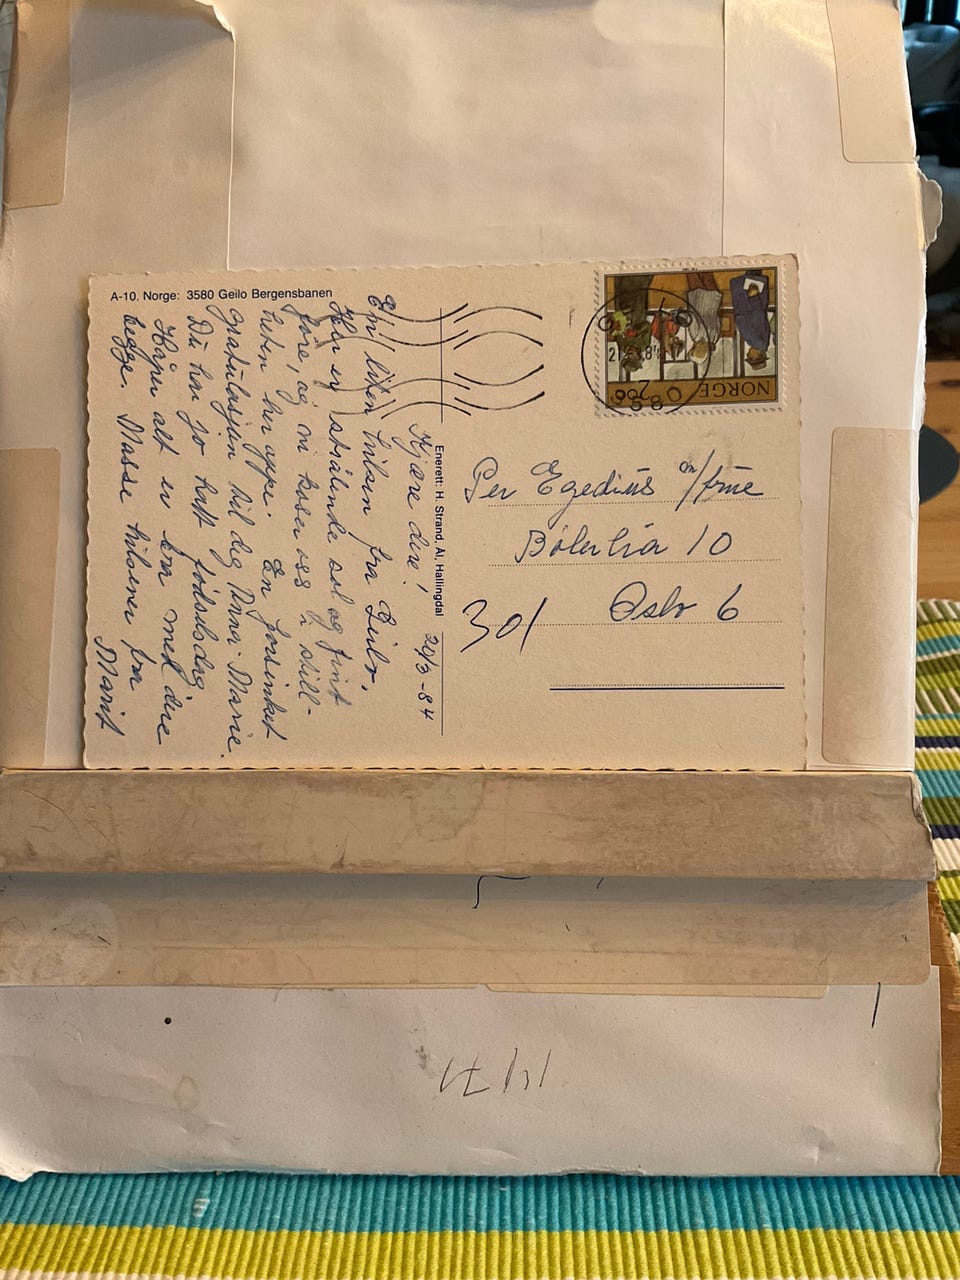 A-10. Norge: 3580 Geilo Bergensbanen
Enerett: H. Strand, Ål, Hallingdal
20/3-84
Kjære dere!
En liten hilsen fra Geilo.
Her er strålende sol og fint
føre, og vi koser oss i still-
heten her oppe. En forsinket
gratulasjon til deg Anna-Marie.
Du har jo hatt fødselsdag
Håper alt er bra med dere
begge. Masse hilsener fra
Marit
NORGE
200
Per Egedius m/frue
Bølerlia 10
Oslo 6
301